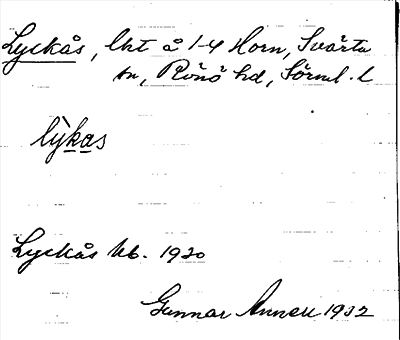 Lyckås, lht å 1-4 Horn, Svärta
sn, Rönö hd, Sörml. l
lỳkas
Lyckås kb. 1920
Gunnar Annell 1932